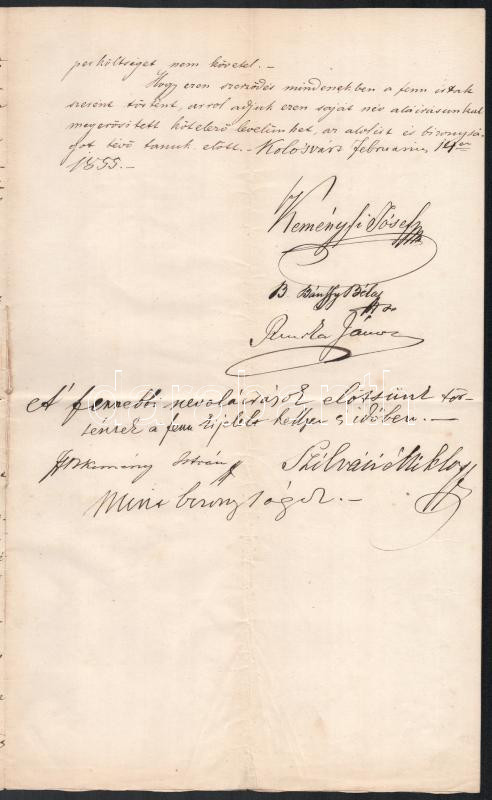 perköltséget nem követel. –
Hogy ezen szerződés mindenekben a fenn írtak
szerént történt, arrol adjuk ezen saját név aláirásunkal
megerősitett kötelező levelünket, az alolírt és bizonysá-
got tévő tanuk előtt. – Kolosvárt Februarius 14én
1855. –
Keményfi Jósef
B. Bánffy Béla
János
A' fennebbi nevaláirások előttünk tör-
téntek a fenn kijelelt helyen s időben. –
Kemény István
Szilvási Miklos
Mint bizonyságok. –